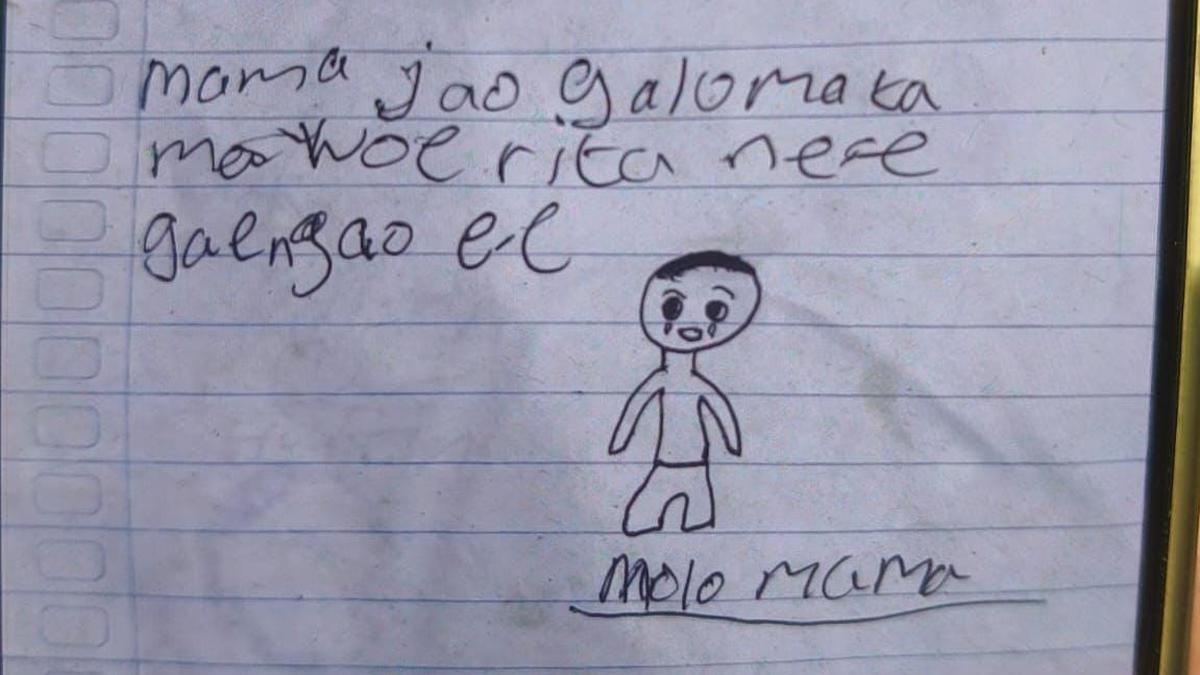 mama jao galo mata
mae woe rita ne'e
gae ngao ee
Molo mama